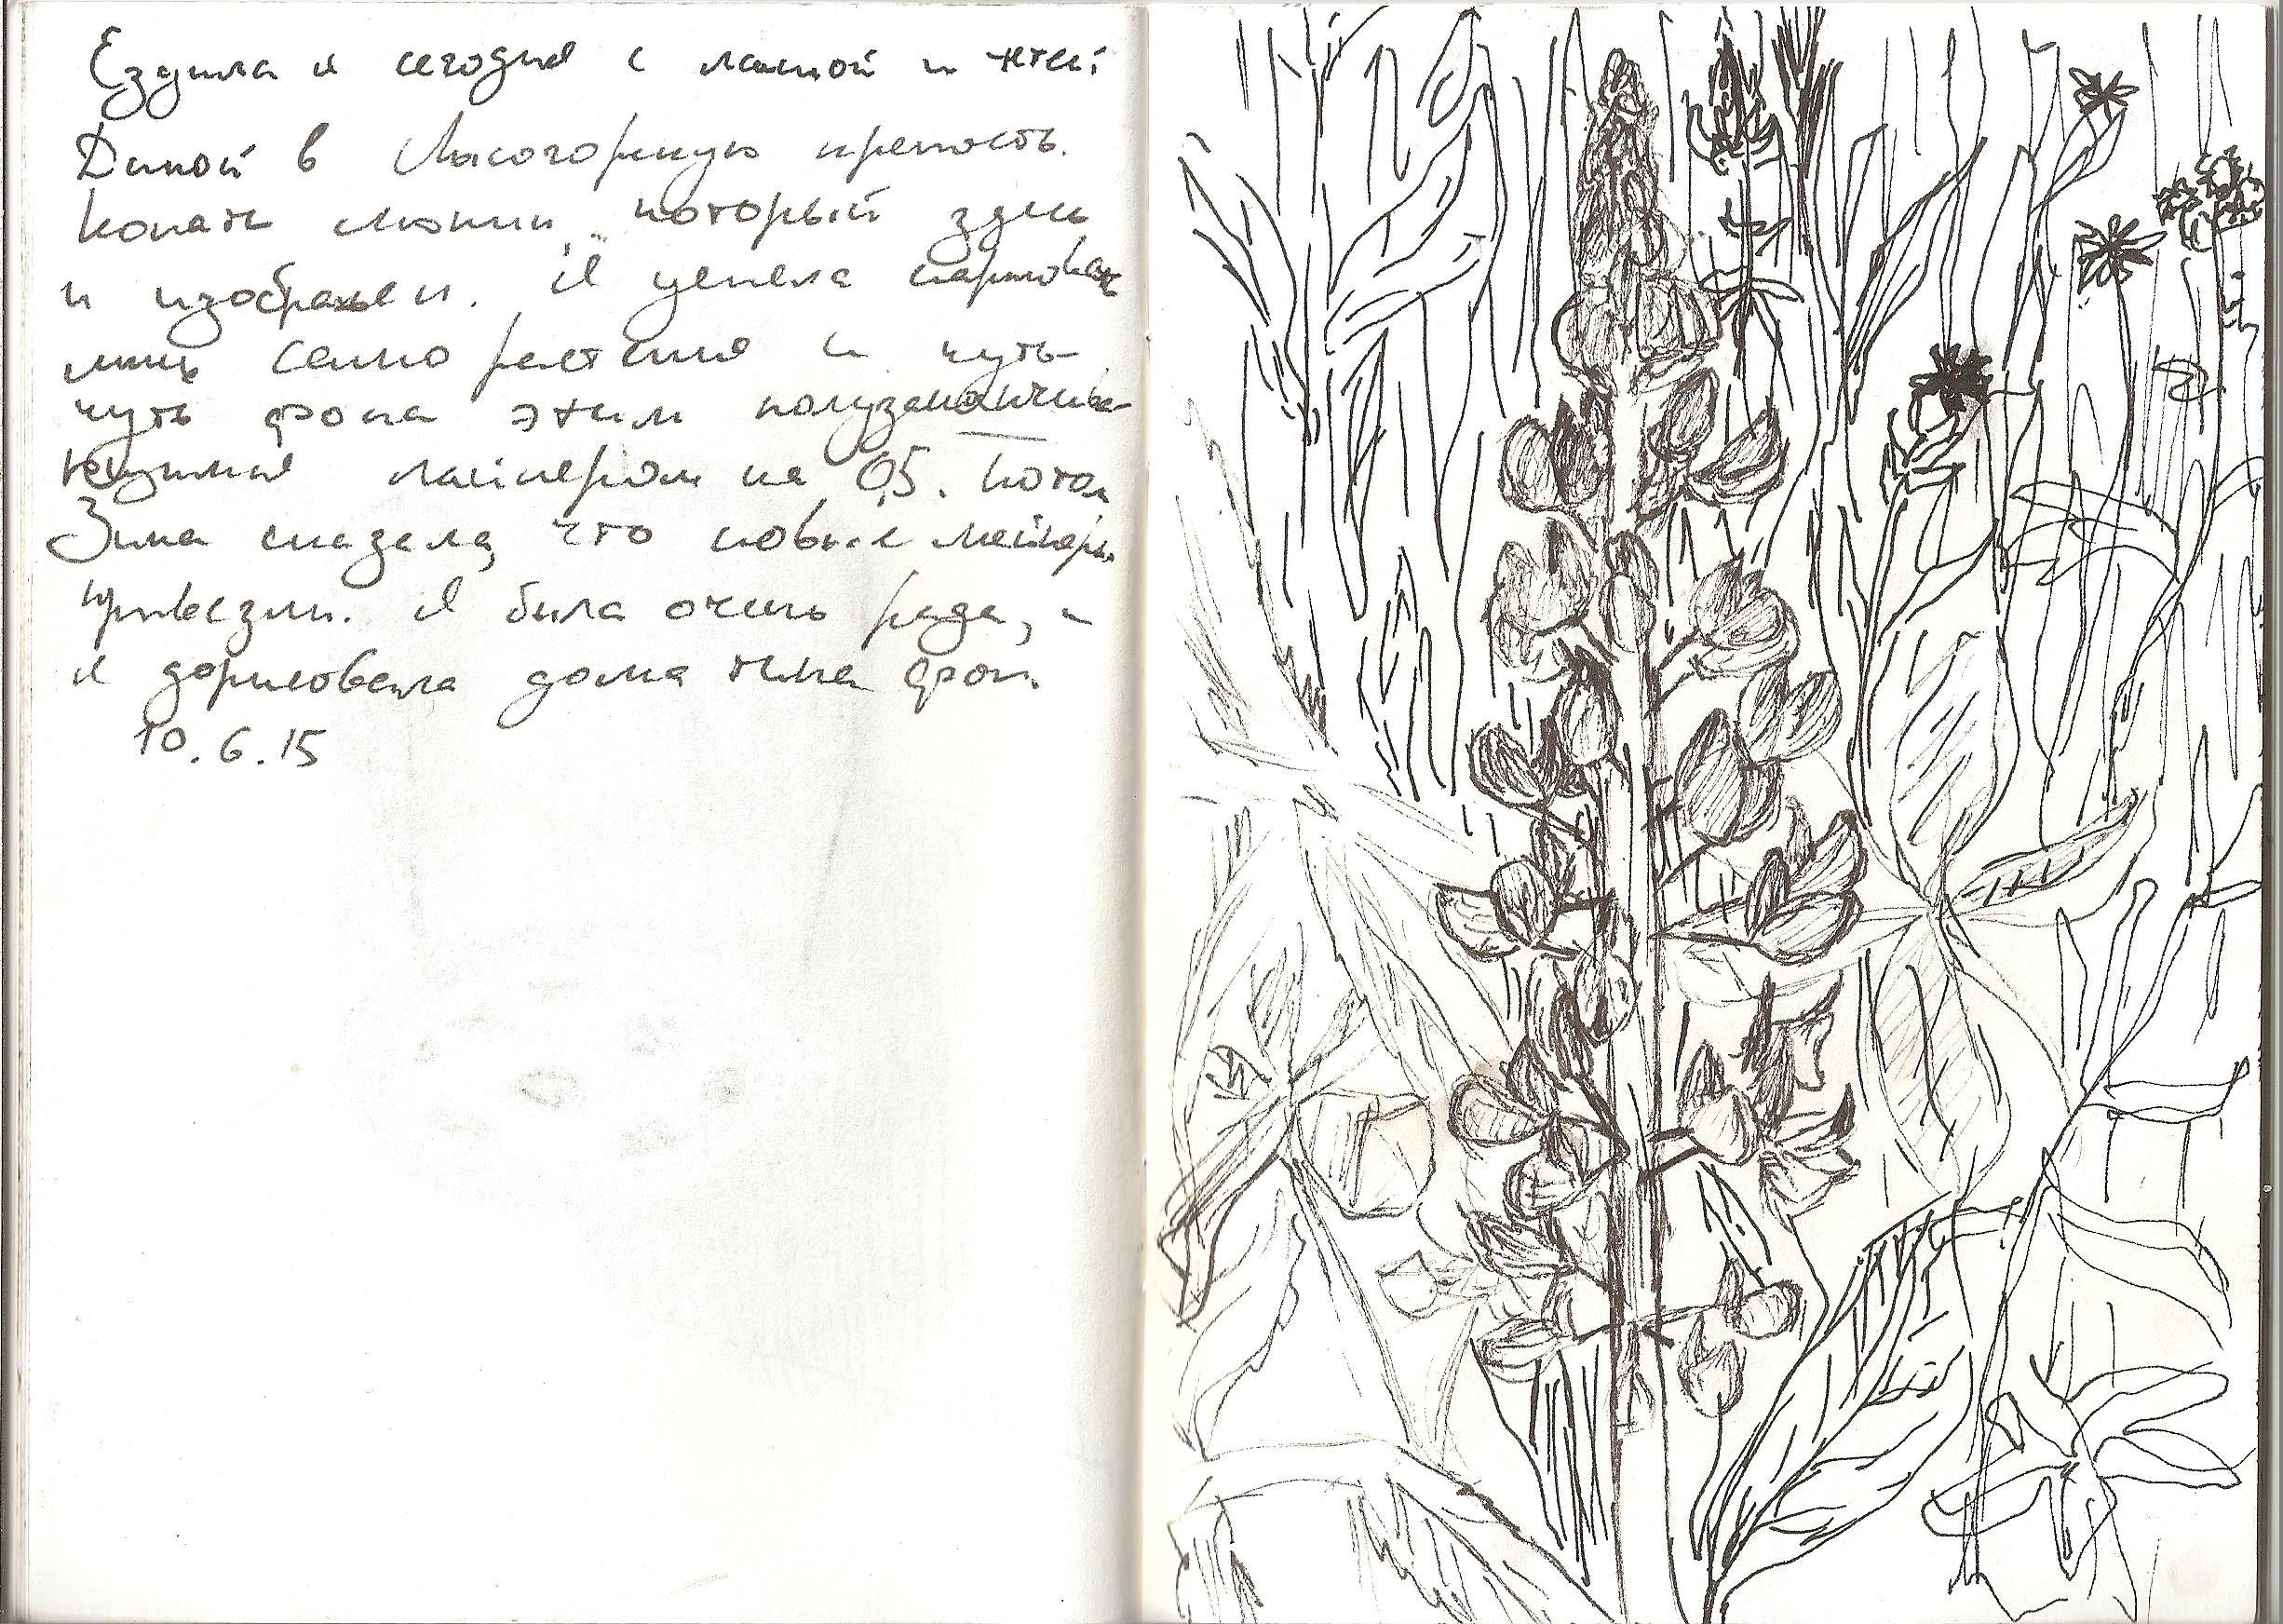 Ездила я сегодня с мамой и тётей
Диной в Лысогорскую крепость.
Копать люпин, который здесь
и изображен. Я успела нарисовать
лишь само растение и чуть-
чуть фона этим полузаканчива-
ющимся лайнером на 0,5. Потом
Зина сказала, что новые лайнеры
привезли. Я была очень рада, и
я дорисовала дома типа фон.
10.6.15